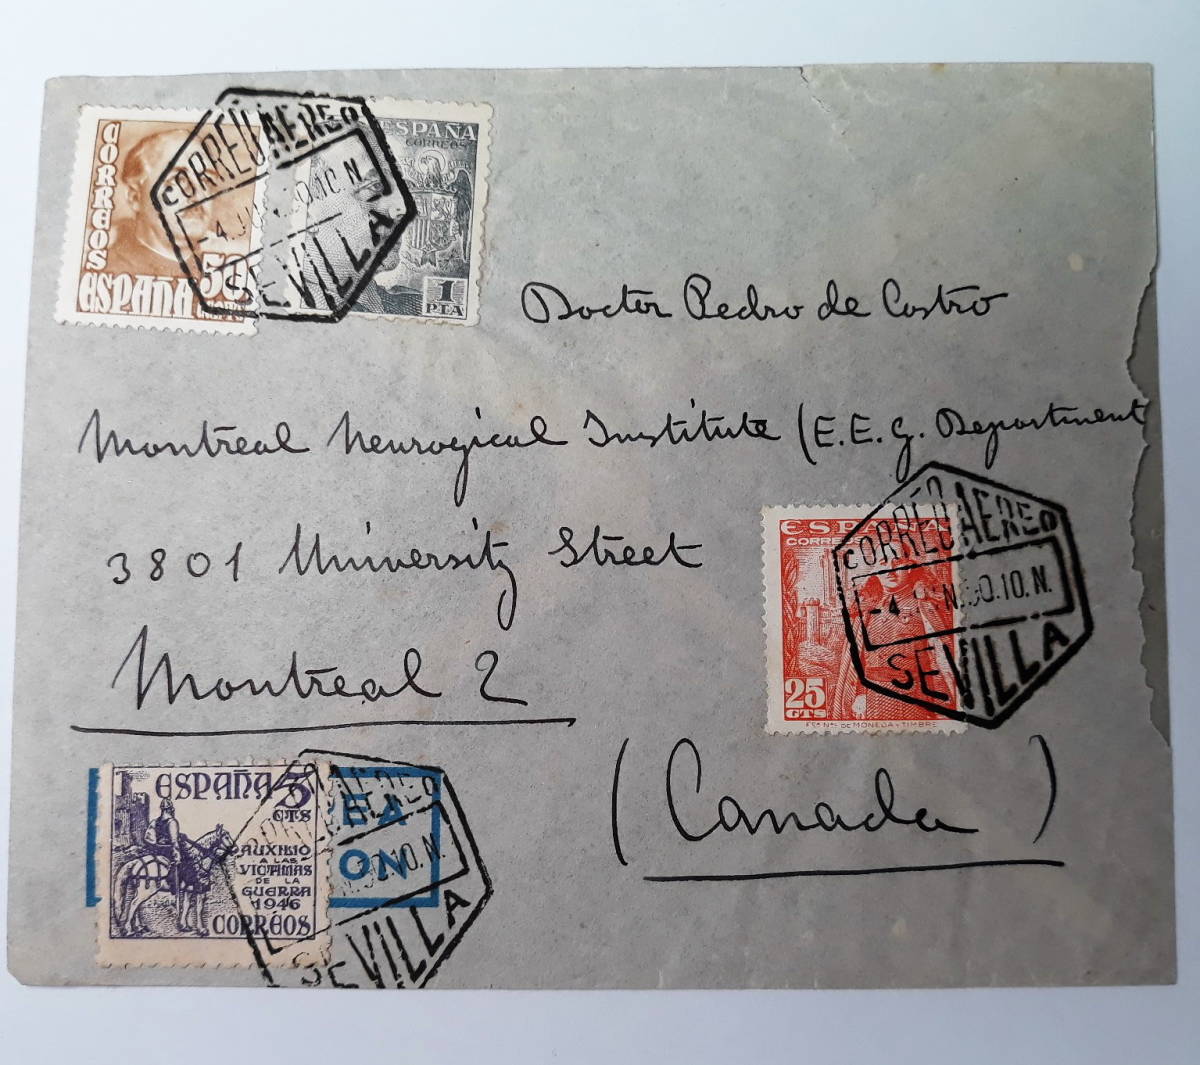 CORREOS
ESPAÑA
50
CORREO AEREO
-4 10 N.
SEVILLA
ESPAÑA
CORREOS
1
PTA
Doctor Pedro de Castro
Montreal Neurogical Institute (E.E.G. Department
3801 University Street
Montreal 2
(Canada)
ESPAÑA
CORRE
25
CTS
FCA NAL DE MONEDA Y TIMBRE
CORREO AEREO
-4 N.50.10.N.
SEVILLA
ESPAÑA 5
CTS
AUXILIO
A LAS
VICTIMAS
DE LA
GUERRA
1946
CORREOS
EA
ON
AEREO
N.50.10.N.
SEVILLA